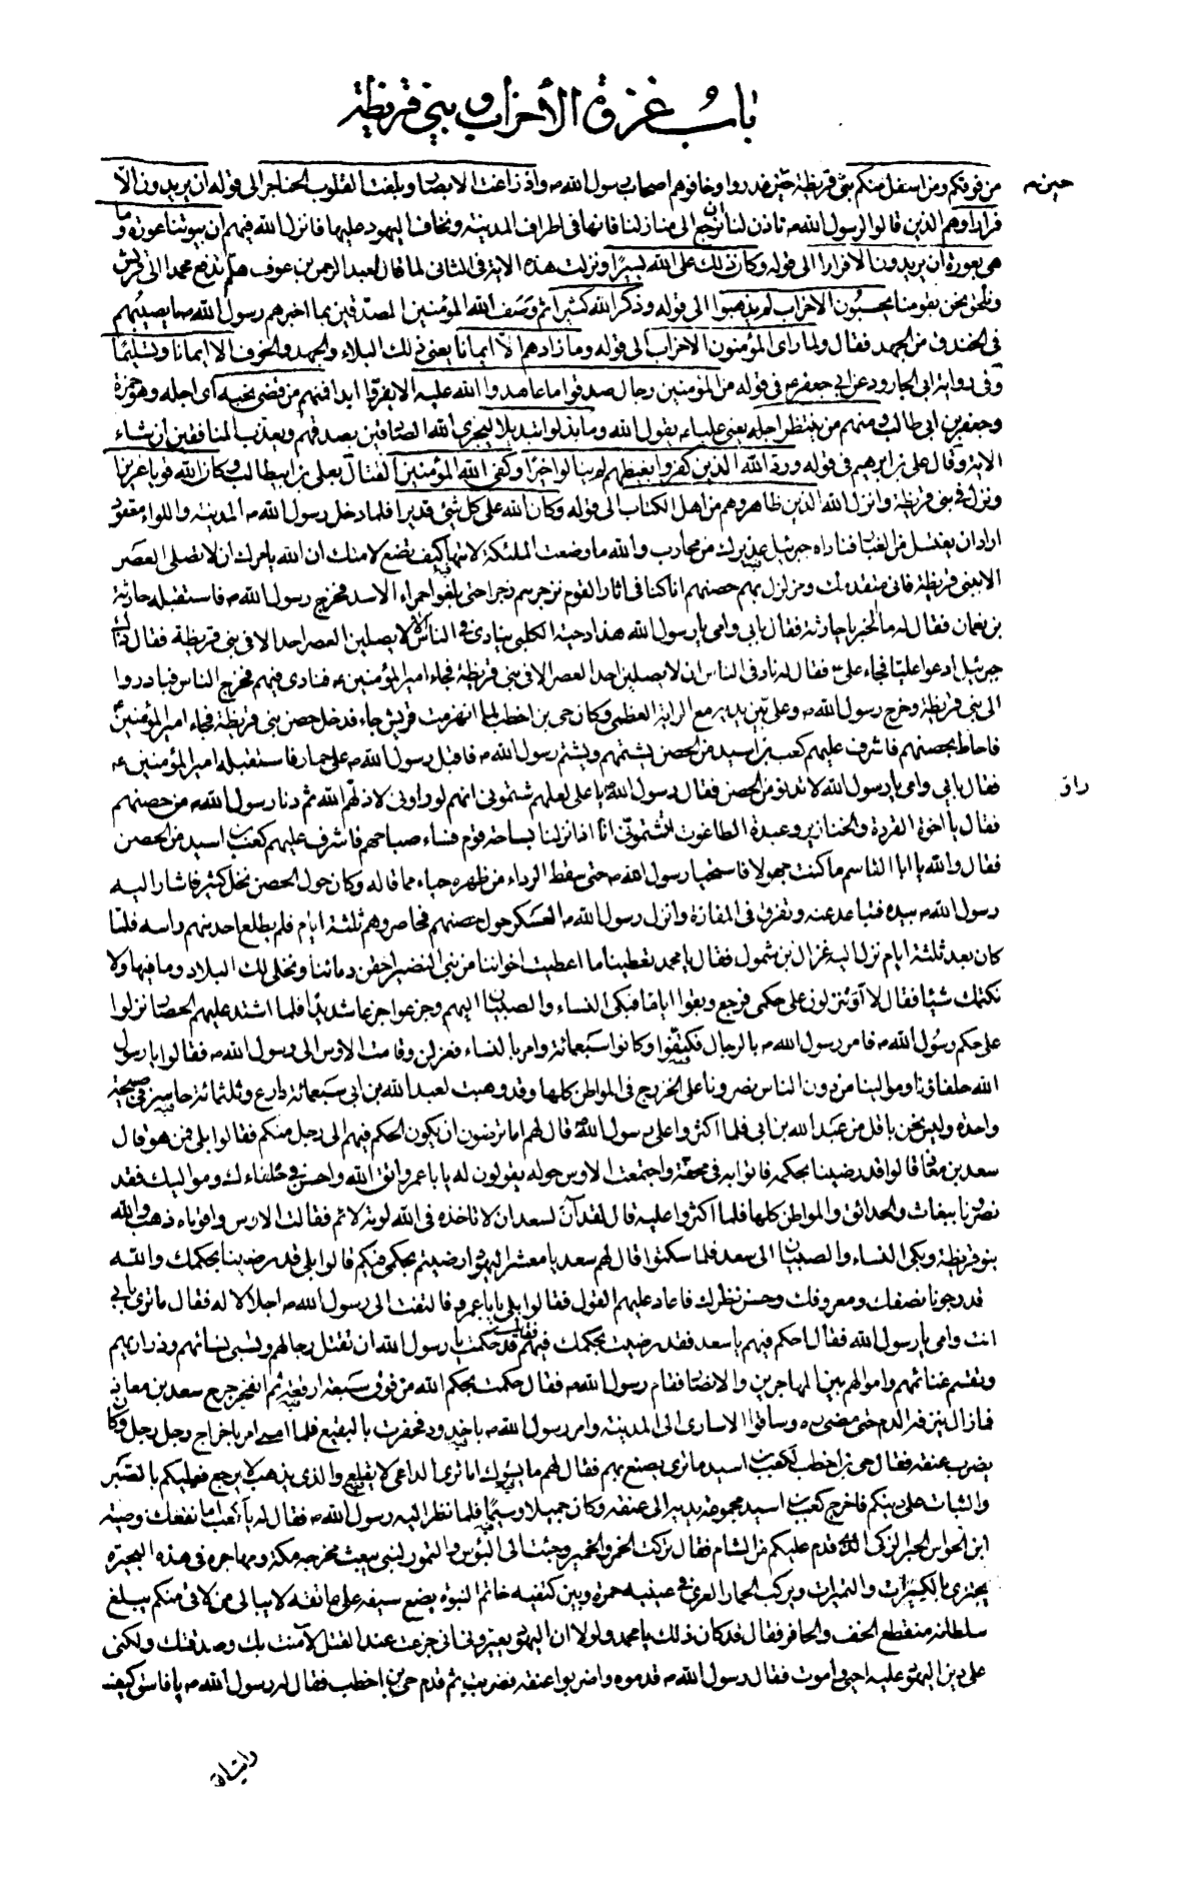 باب غزوة الأحزاب وبني قريظة
من فوقكم ومن اسفل منكم بني قريظة حين غدروا وخافوهم اصحاب رسول الله ص واذ زاغت الابصار وبلغت القلوب الحناجر الى قوله ان يريدون الّا
حين م
فرارا وهم الذين قالوا لرسول الله ص تاذن لنا نرجع الى منازلنا فانها في اطراف المدينة ونخاف اليهود عليها فانزل الله فيهم ان بيوتنا عورة وما
هي بعورة ان يريدون الا فرارا الى قوله وكان ذلك على الله يسيرا ونزلت هذه الاية في الثاني لما قال لعبد الرحمن بن عوف هلم ندفع محمدا الى قريش
ونلحق نحن بقومنا يحسبون الاحزاب لم يذهبوا الى قوله وذكر الله كثيرا ثم وصف الله المؤمنين المصدقين بما اخبرهم رسول الله ص ما يصيبهم
في الخندق من الجهد فقال ولما راى المؤمنون الاحزاب الى قوله وما زادهم الا ايمانا يعني ذلك البلاء والجهد والخوف الا ايمانا وتسليما
وفي رواية ابي الجارود عن ابي جعفر ع في قوله من المؤمنين رجال صدقوا ما عاهدوا الله عليه الا يفرّوا ابدا فمنهم من قضى نحبه اى اجله وهو حمزة
وجعفر بن ابي طالب ومنهم من ينتظر اجله يعني عليا ع يقول الله وما بدلوا تبديلا ليجزي الله الصادقين بصدقهم ويعذب المنافقين ان شاء
الاية وقال علي بن ابرهيم في قوله ورد الله الذين كفروا بغيظهم لم ينالوا خيرا وكفى الله المؤمنين القتال بعلي بن ابيطالب وكان الله قويا عزيزا
ونزل في بني قريظة وانزل الله الذين ظاهروهم من اهل الكتاب الى قوله وكان الله على كل شيئ قديرا فلما دخل رسول الله ص المدينة واللواء معقود
اراد ان يغتسل من الغبار فناداه جبرئيل عذيرك من محارب والله ما وضعت الملئكة لامتها كيف تضع لامتك ان الله يامرك ان لا تصلى العصر
الا ببني قريظة فاني متقدمك ومزلزل بهم حصنهم انا كنا في اثار القوم نزجرهم زجرا حتى بلغوا حمراء الاسد فخرج رسول الله ص فاستقبله حارثة
بن نعمان فقال له ما الخبر يا حارثة فقال بابي وامي يا رسول الله هذا دحية الكلبي ينادي في الناس الا لا يصلين العصر احد الا في بني قريظة فقال ذاك
جبرئيل ادعوا عليّا فجاء علي ع فقال له ناد في الناس ان لا يصلين احد العصر الا في بني قريظة فجاء امير المؤمنين ع فنادى فيهم فخرج الناس فبادروا
الى بني قريظة وخرج رسول الله ص وعلي بين يديه مع الراية العظمى وكان حي بن اخطب لما انهزمت قريش جاء فدخل حصن بني قريظة فجاء امير المؤمنين ع
فاحاط بحصنهم فاشرف عليهم كعب بن اسيد من الحصن يشتمهم ويشتم رسول الله ص فاقبل رسول الله ص على حمار فاستقبله امير المؤمنين ع
فقال بابي وامي يا رسول الله لا تدنو من الحصن فقال رسول الله ص يا علي لعلهم شتموني انهم لو راوني لاذلهم الله ثم دنا رسول الله ص من حصنهم
فقال يا اخوة القردة والخنازير وعبدة الطاغوت اتشتموني انا اذا نزلنا بساحة قوم فساء صباحهم فاشرف عليهم كعب بن اسيد من الحصن
فقال والله يا ابا القاسم ما كنت جهولا فاستحيا رسول الله ص حتى سقط الرداء من ظهره حياء مما قاله وكان حول الحصن نخل كثير فاشار اليه
رسول الله ص بيده فتباعد عنه وتفرق في المفازة وانزل رسول الله ص العسكر حول حصنهم فحاصروهم ثلثة ايام فلم يطلع احد منهم راسه فلما
كان بعد ثلثة ايام نزل اليه غزال بن شمول فقال يا محمد تعطينا ما اعطيت اخواننا من بني النضير احقن دمائنا ونخلى لك البلاد وما فيها ولا
نكتمك شيئا فقال لا او تنزلون على حكمي فرجع وبقوا اياما فبكى النساء والصبيان اليهم وجزعوا جزعا شديدا فلما اشتد عليهم الحصار نزلوا
على حكم رسول الله ص فامر رسول الله ص بالرجال فكتفوا وكانوا سبعمائة وامر بالنساء فعزلن وقامت الاوس الى رسول الله ص فقالوا يا رسول
الله حلفاؤنا وموالينا من دون الناس نصرونا على الخزرج في المواطن كلها وقد وهبت لعبد الله بن ابي سبعمائة دارع وثلثمائة حاسر في صبيحة
واحدة وليس نحن باقل من عبد الله بن ابي فلما اكثروا على رسول الله ص قال لهم اما ترضون ان يكون الحكم فيهم الى رجل منكم فقالوا بلى فمن هو قال
سعد بن معاذ قالوا قد رضينا بحكمه فاتوا به في محفة واجتمعت الاوس حوله يقولون له يا با عمرو اتق الله واحسن في حلفاءك ومواليك فقد
نصرونا ببغاث والحدائق والمواطن كلها فلما اكثروا عليه قال لقد آن لسعد ان لا تاخذه في الله لومة لائم فقالت الاوس واقوماه ذهب والله
بنو قريظة وبكى النساء والصبيان الى سعد فلما سكتوا قال لهم سعد يا معشر اليهود ارضيتم بحكمي فيكم قالوا بلى قد رضينا بحكمك والله
قد رجونا نصفك ومعروفك وحسن نظرك فاعاد عليهم القول فقالوا بلى يا با عمرو فالتفت الى رسول الله ص اجلالا له فقال ما ترى بابي
انت وامي يا رسول الله فقال احكم فيهم يا سعد فقد رضيت بحكمك فيهم فقال قد حكمت يا رسول الله ان تقتل رجالهم وتسبى نسائهم وذراريهم
وتقسم غنائمهم واموالهم بين المهاجرين والانصار فقام رسول الله ص فقال حكمت بحكم الله من فوق سبعة ارقعة ثم انفجر جرح سعد بن معاذ
فما زال ينزفه الدم حتى مضى ره وساقوا الاسارى الى المدينة وامر رسول الله ص باخدود فحفرت بالبقيع فلما امسى امر باخراج رجل رجل وكان
يضرب عنقه فقال حي بن اخطب لكعب بن اسيد ما ترى يصنع بهم فقال لهم ما يسوءك اما ترى الداعي لا يقلع والذي يذهب لا يرجع فعليكم بالصبر
والثبات على دينكم فاخرج كعب بن اسيد مجموعة يديه الى عنقه وكان جميلا وسيما فلما نظر اليه رسول الله ص فقال له يا كعب اما نفعك وصية
ابن الحواس الحبر الزكي الذي قدم عليكم من الشام فقال تركت الخمر والخمير وجئت الى البؤس والتمور لنبي يبعث مخرجه مكة ومهاجره في هذه البحيرة
يجتزى بالكسيرات والتميرات ويركب الحمار العري في عينيه حمرة وبين كتفيه خاتم النبوة يضع سيفه على عاتقه لا يبالي من لاقى منكم يبلغ
سلطانه منقطع الخف والحافر فقال قد كان ذلك يا محمد ولولا ان اليهود يعيروني اني جزعت عند القتل لآمنت بك وصدقتك ولكني
على دين اليهود عليه احيى واموت فقال رسول الله ص قدموه واضربوا عنقه فضربت ثم قدم حي بن اخطب فقال له رسول الله ص يا فاسق كيف